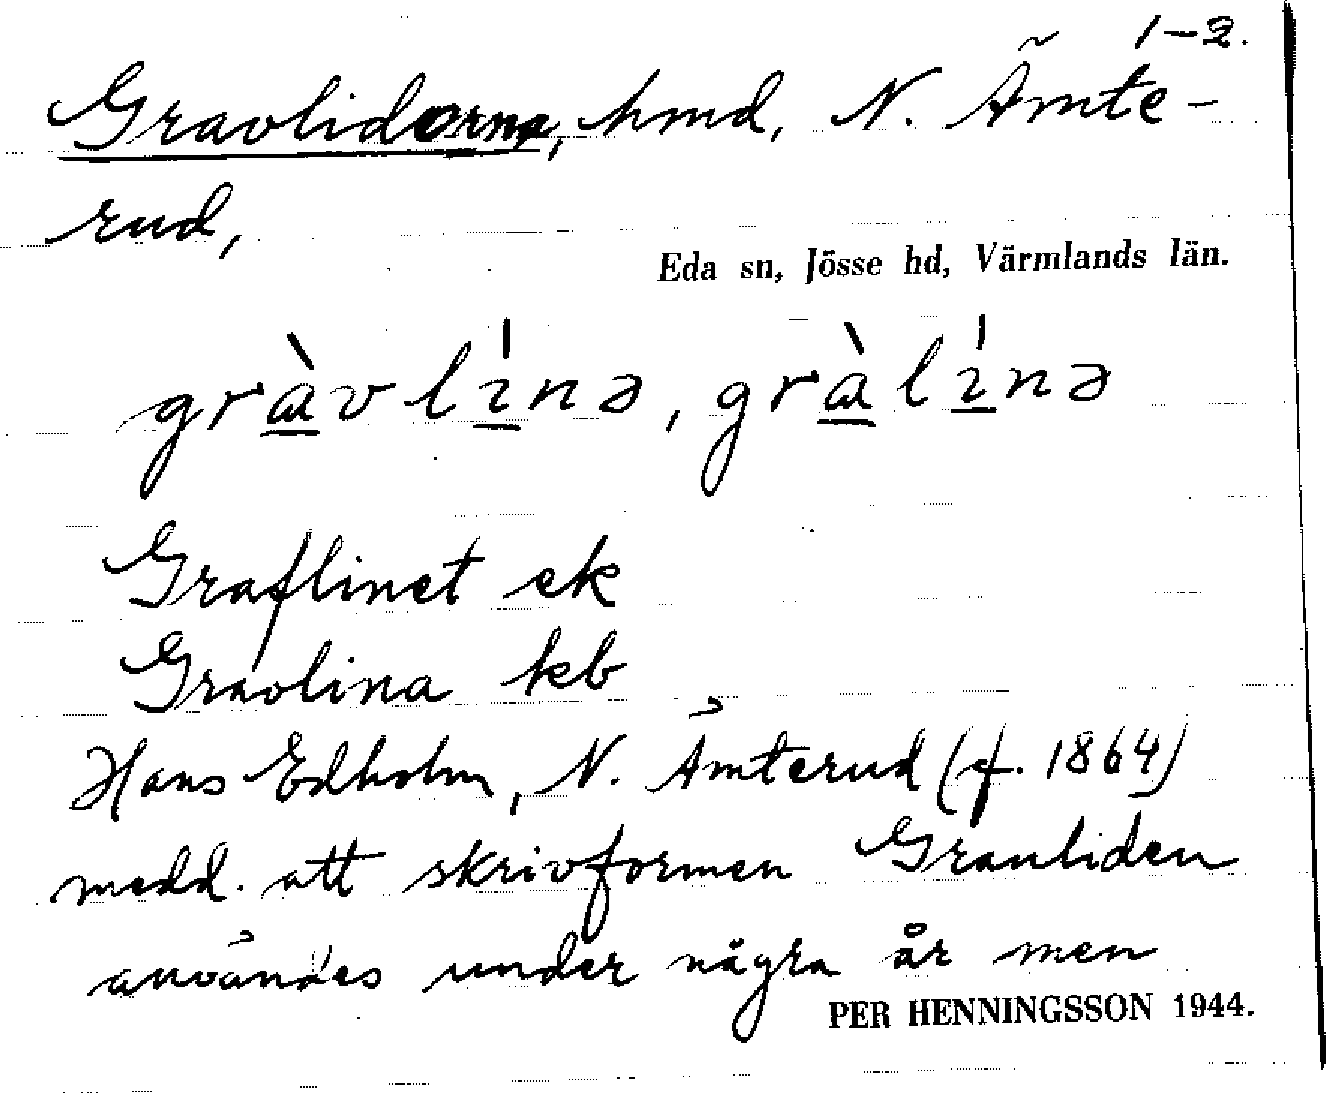 1-2.
Gravlidorna, hmd, N. Ämte-
rud,
Eda sn, Jösse hd, Värmlands län.
gràvlínə, gràlínə
Graflinet ek
Gravlina kb
Hans Edholm, N. Ämterud (f. 1864)
medd. att skrivformen Granliden
användes under några år men
PER HENNINGSSON 1944.